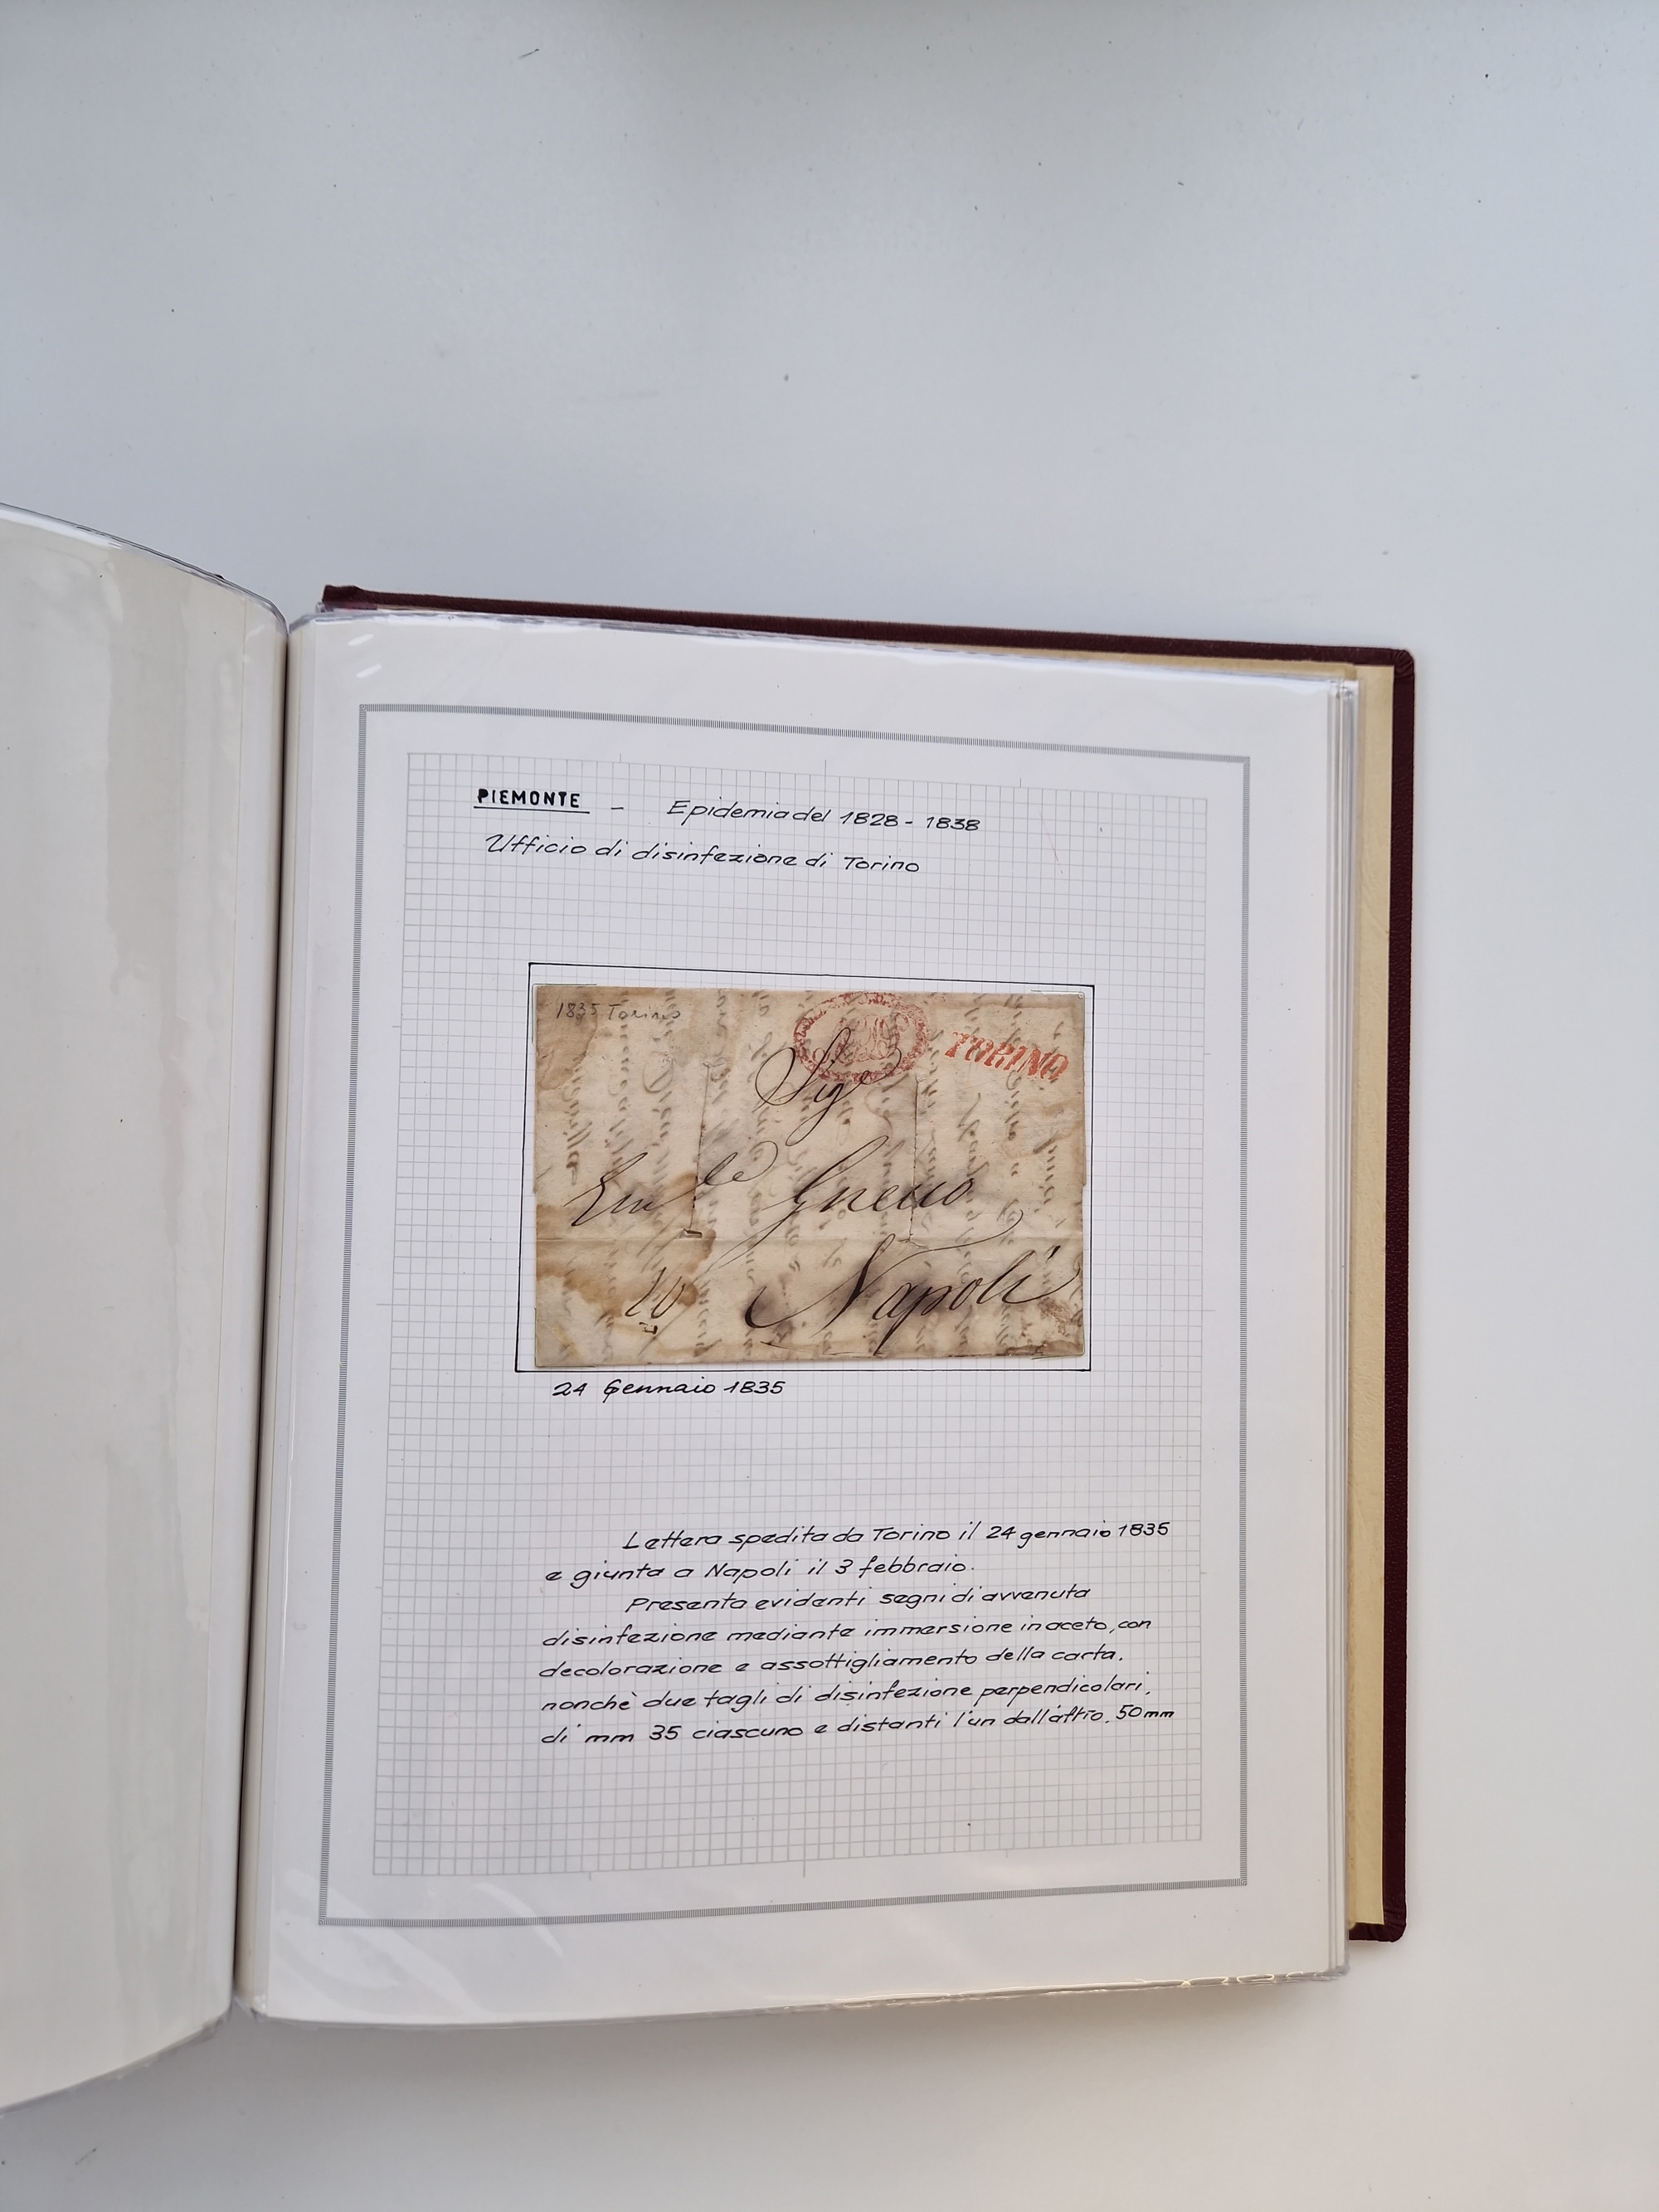 PIEMONTE - Epidemia del 1828 - 1838
Ufficio di disinfezione di Torino
1835 Torino
TORINO
Sig.r
Napoli
24 Gennaio 1835
Lettera spedita da Torino il 24 gennaio 1835
e giunta a Napoli il 3 febbraio.
Presenta evidenti segni di avvenuta
disinfezione mediante immersione in aceto, con
decolorazione e assottigliamento della carta,
nonchè due tagli di disinfezione perpendicolari,
di mm 35 ciascuno e distanti l'un dall'altro, 50 mm